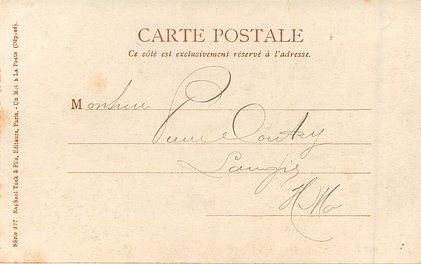 CARTE POSTALE
Ce côté est exclusivement réservé à l'adresse.
Monsieur
Pierre
Série 377. Raphael Tuck & Fils, Editeurs, Paris. - Un Mot à La Poste (Déposé).